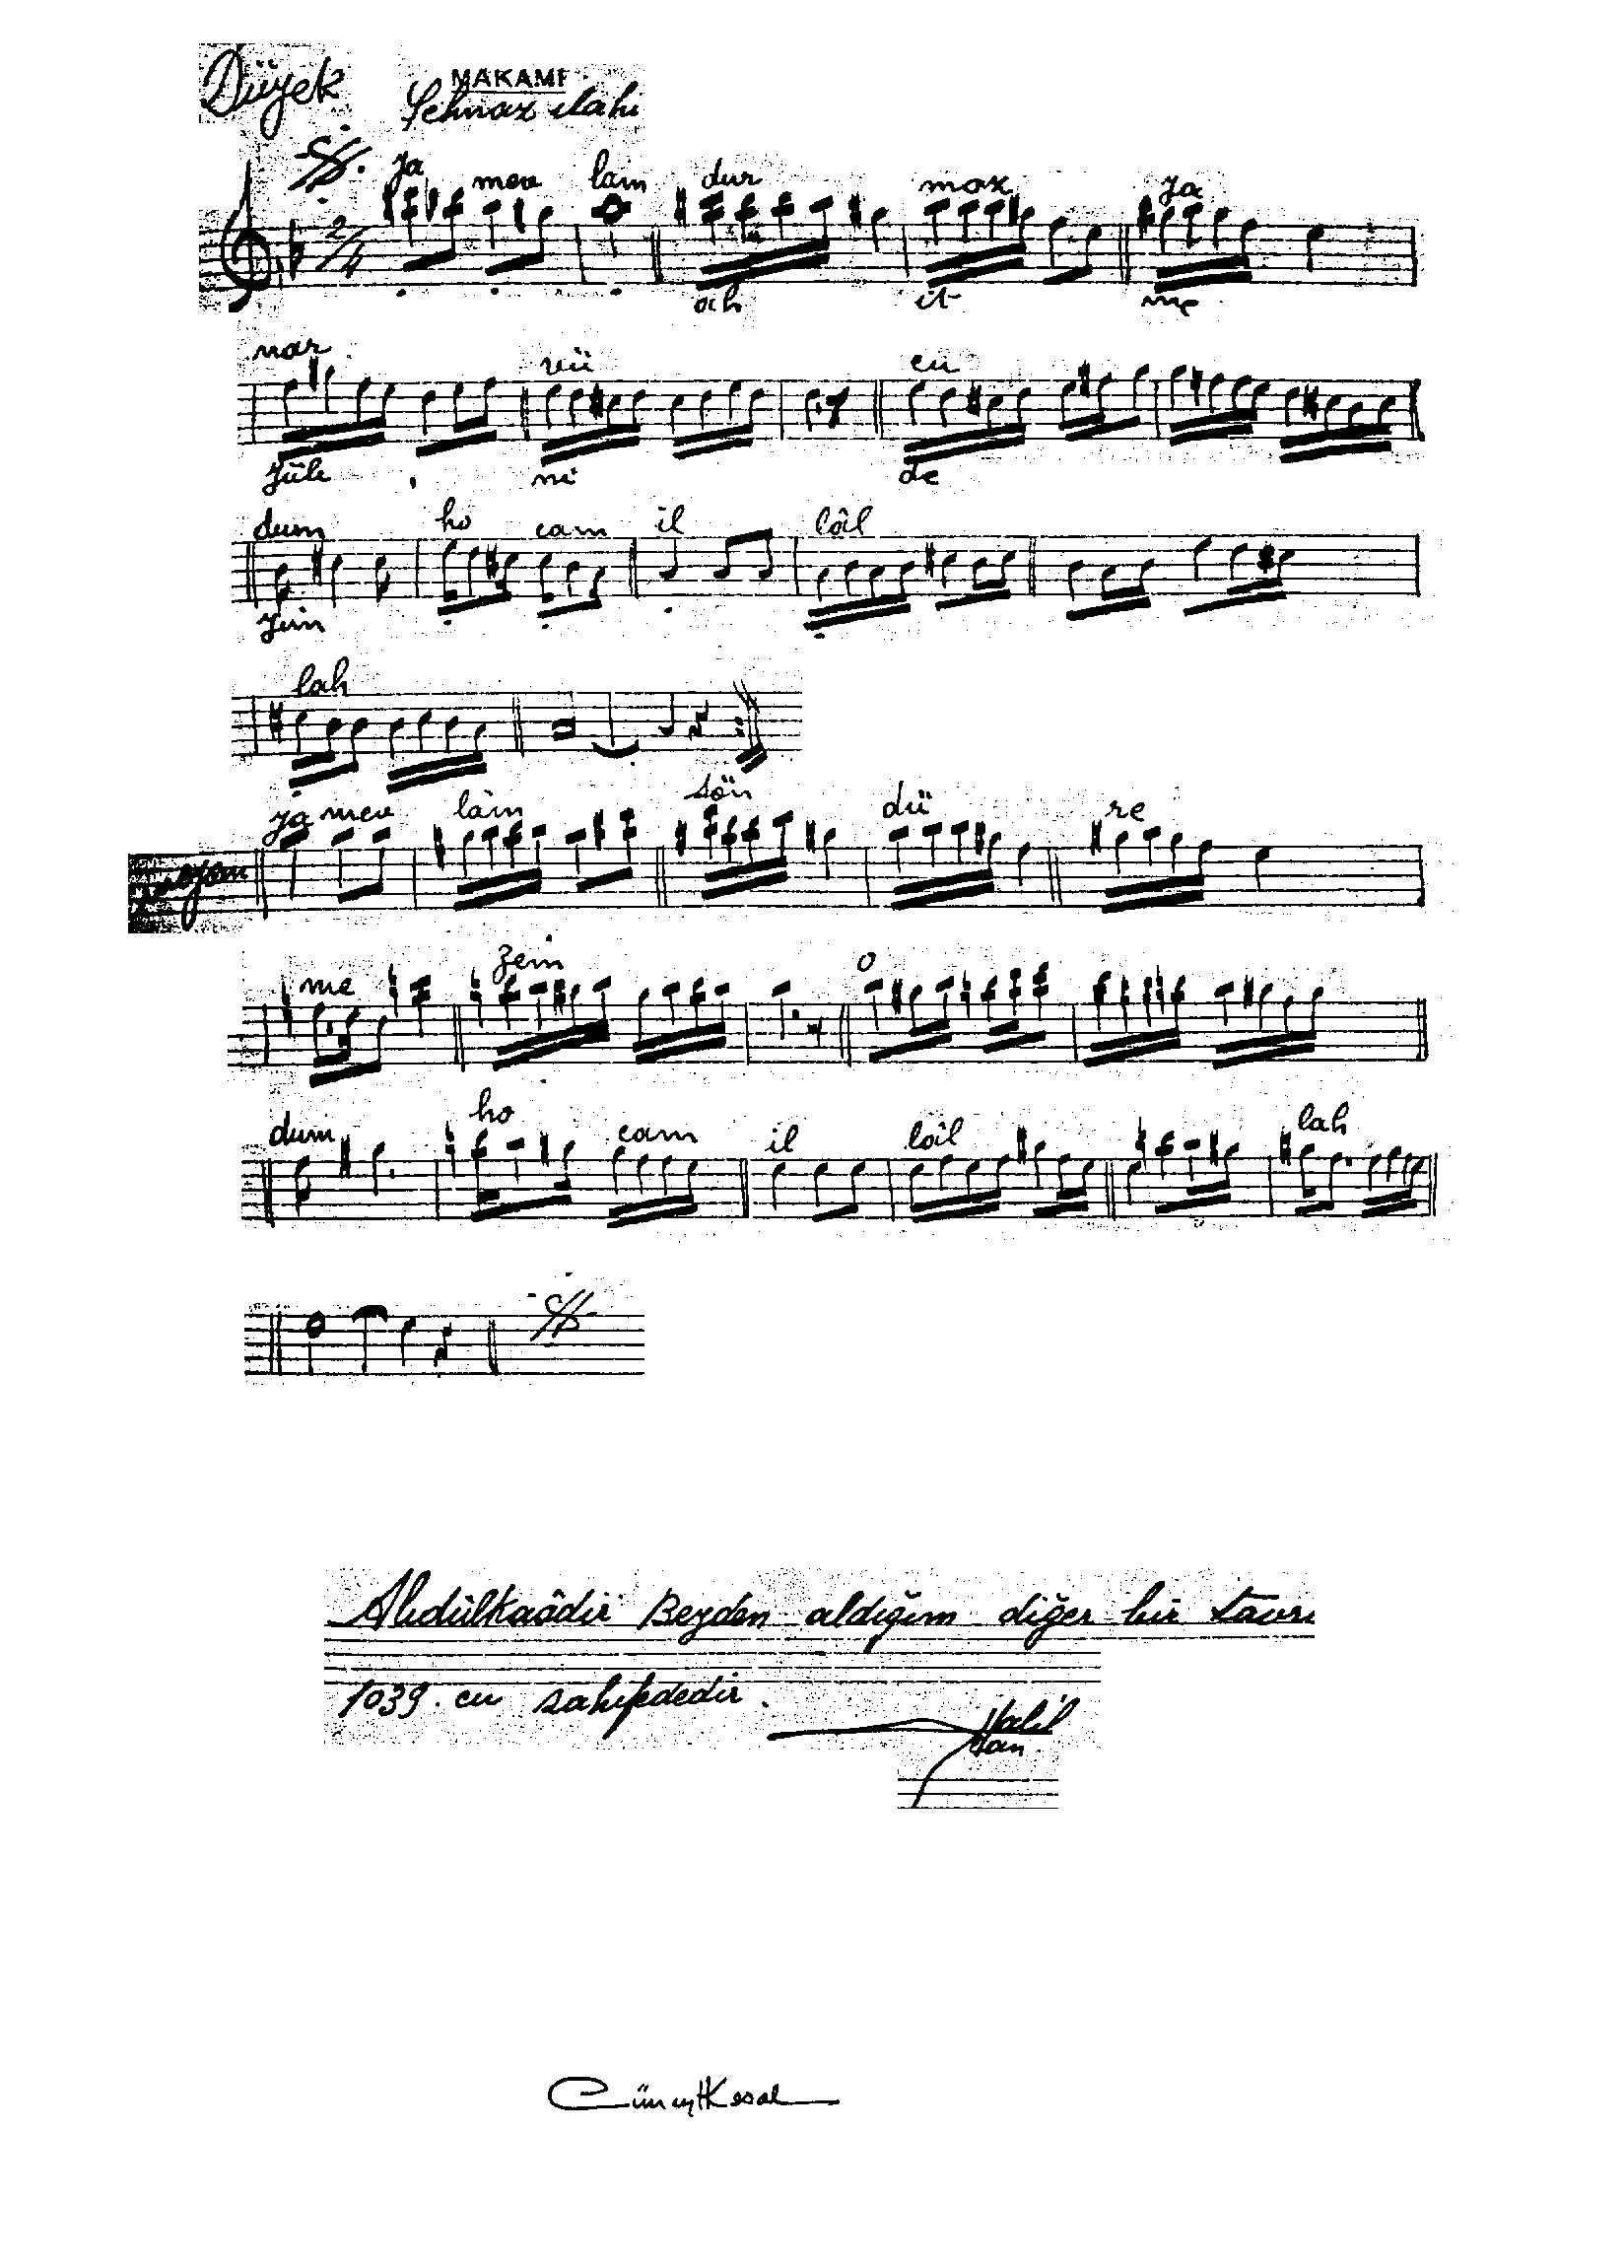 Düyek
MAKAMI
Şehnaz ilahi
2/4
Ya mev lâm dur maz ya
ah it me
nar vü cu
Yüle ni de
dum ho cam il lâil
Yim
lah
ya mev lâm sön dü re
me zem o
dum ho cam il lâil lah
Abdülkaâdir Beyden aldığım diğer bir tavrı
1039. cu sahifededir.
Halil
Can
Cüneyt Kosal